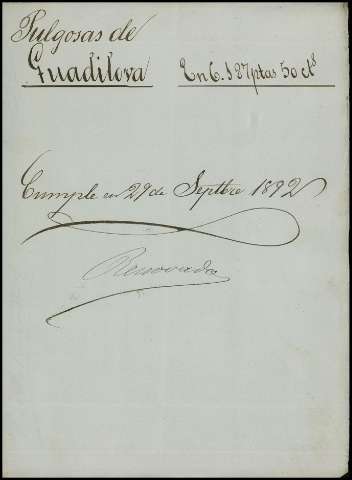 Pulgosas de
Guadilova
En 6.127 ptas 50 cts
Cumple en 29 de Septbre 1892
Renovada